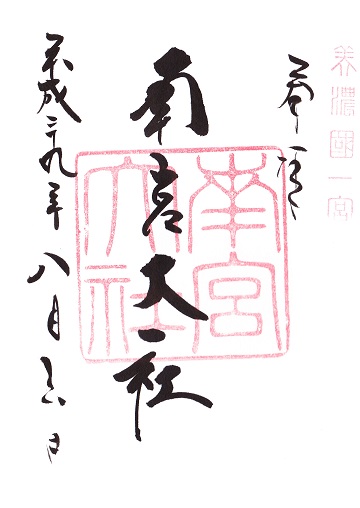 美濃國一宮
奉拝
南宮大社
南宮
大社
平成二十九年八月六日